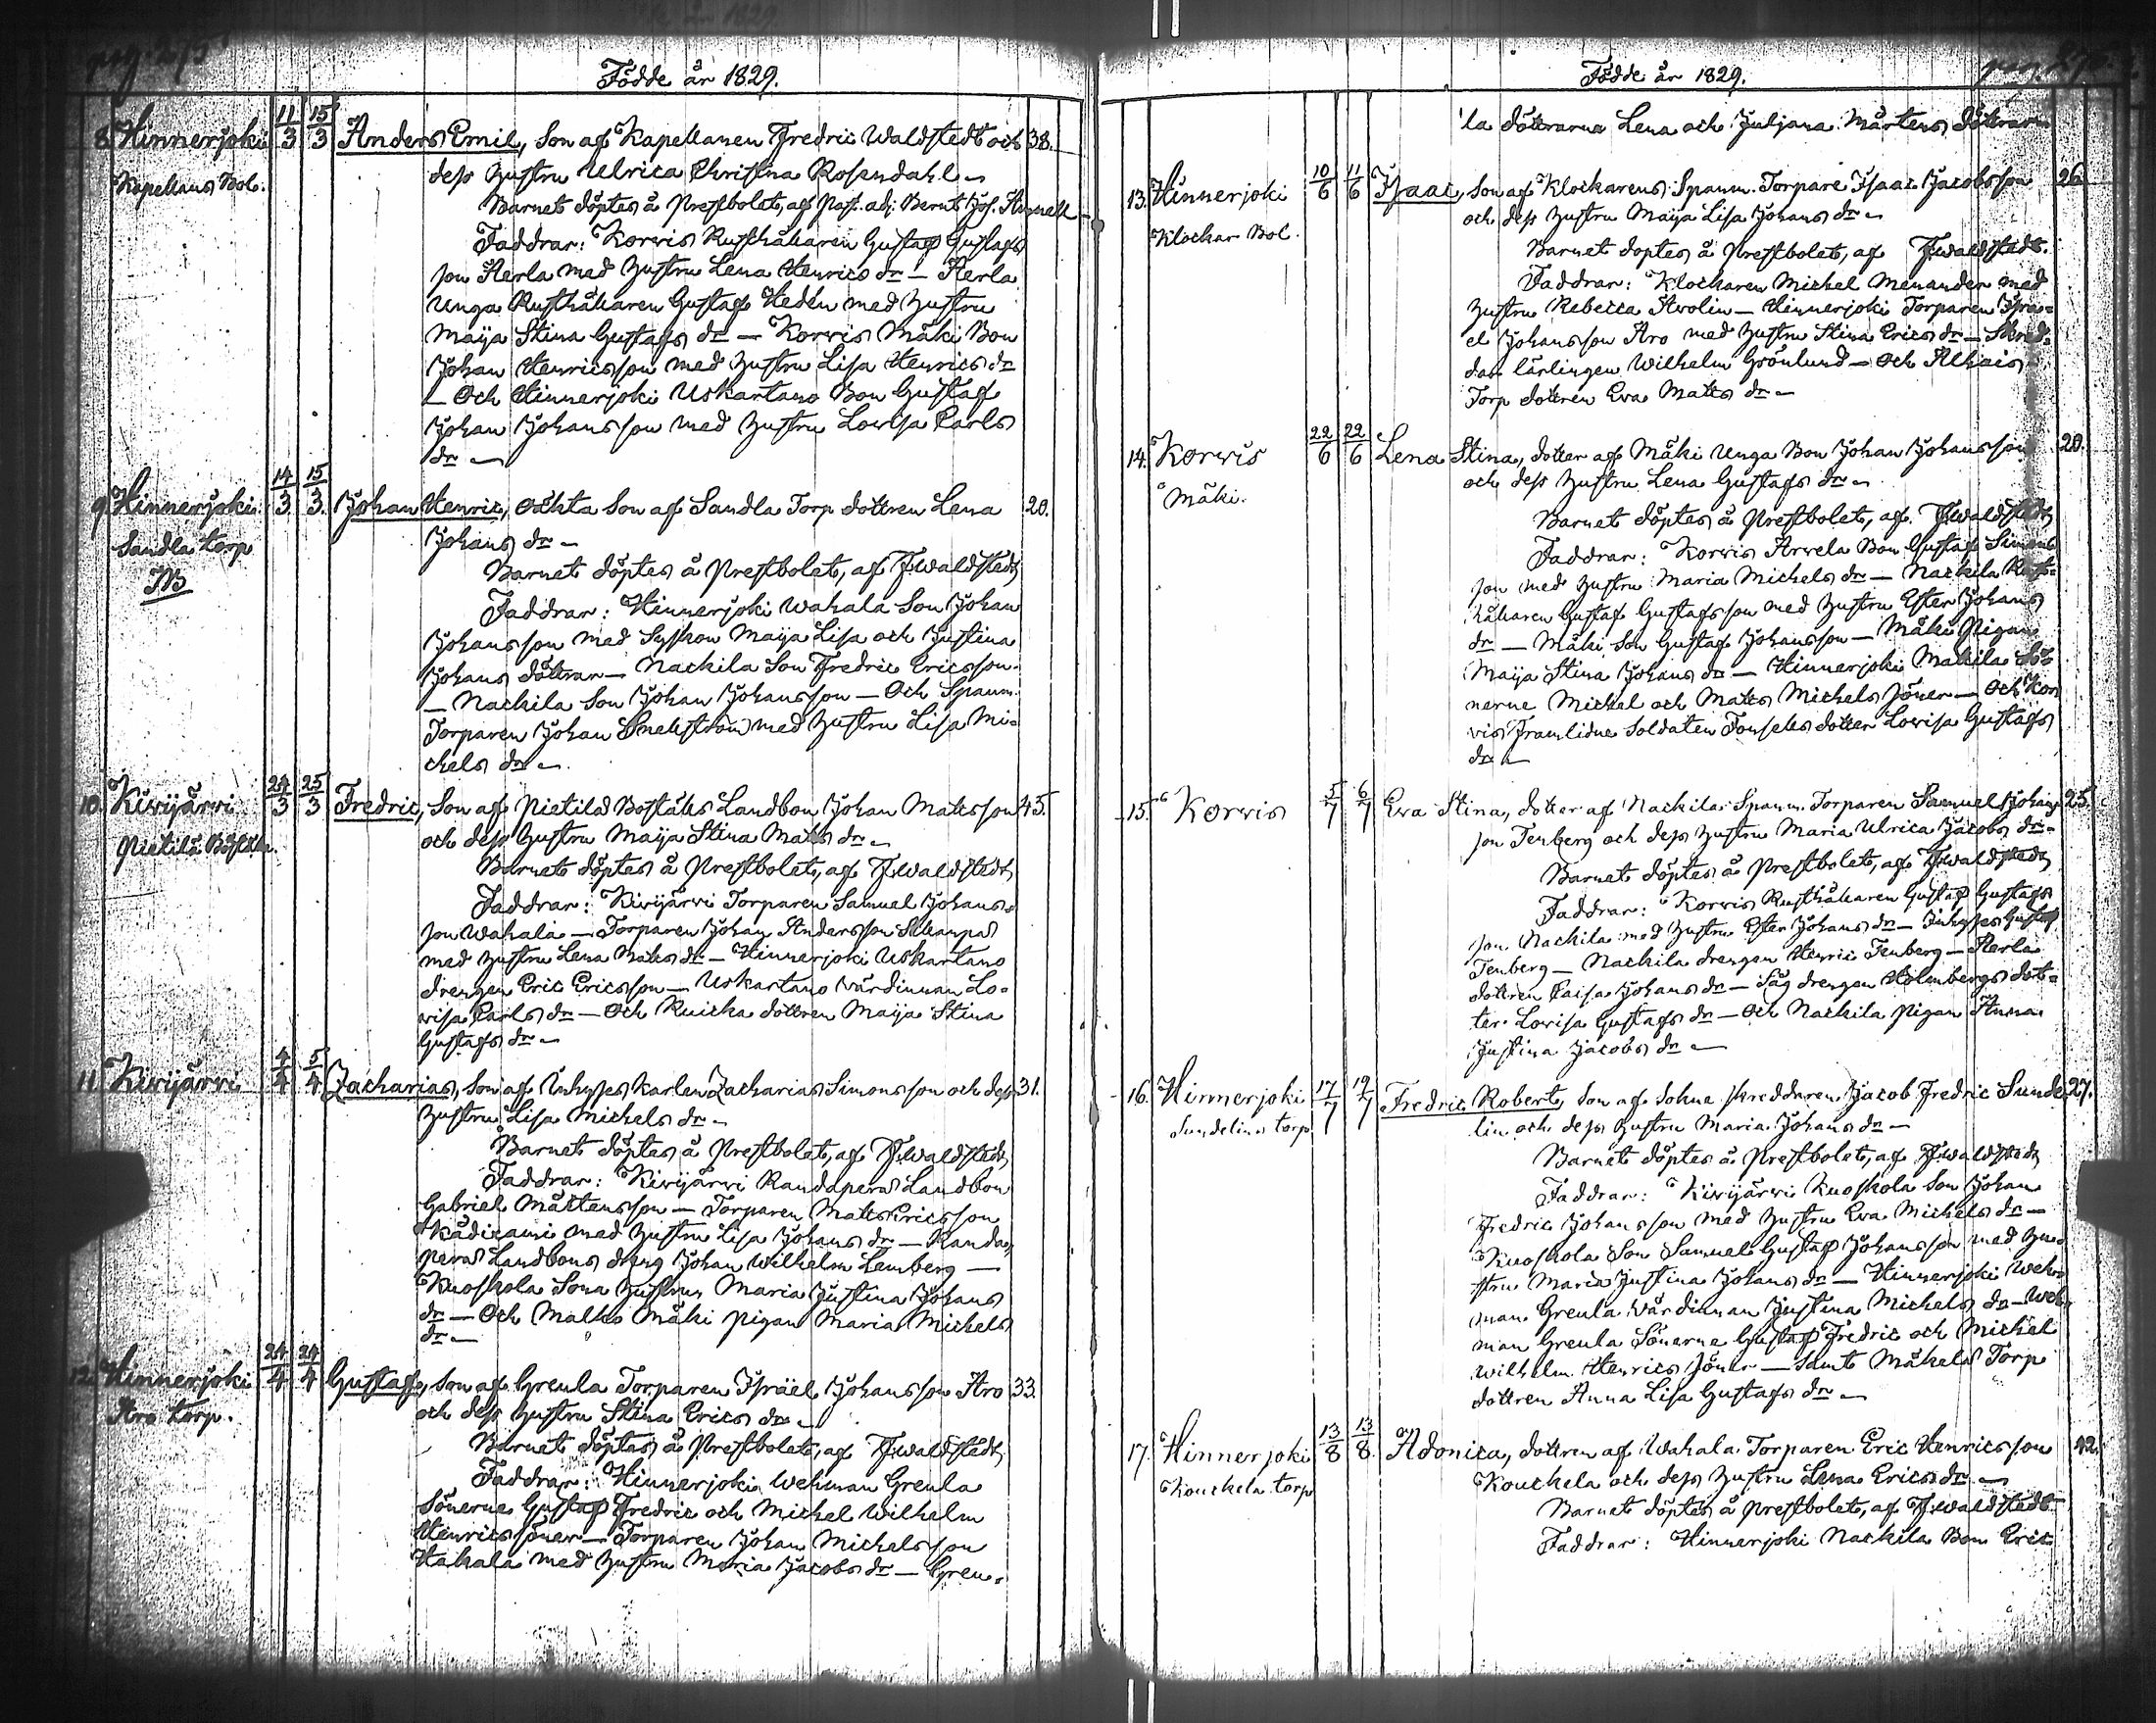 Födde år 1829.
8. Hinnerjoki 11/3 15/3 Anders Emil, Son af Kapellanen Fredric Waldstedt och 38.
Kapellans Bol. dess hustru Ulrica Christina Rosendahl –
Barnet döptes å Prestbolet, af Past. adj. Bernt Joh.
Faddrar: Korwis Rusthållaren Gustaf Gustafs
son Äerla med hustru Lena Henrics dr – Äerla
Unga Rusthållaren Gustaf Hedén med hustru
Maija Stina Gustafs dr – Korwis Mäki Bon
Johan Henricsson med hustru Lisa Henrics dr
– Och Hinnerjoki Uskartano Bon Gustaf
Johan Johansson med hustru Lowisa Carls
dr –
9. Hinnerjoki 14/3 15/3 Johan Henric, Oächta Son af Sandla Torp dottren Lena 20.
Sandla torp Johans dr –
Barnet döptes å Prestbolet, af F. Waldstedt
Faddrar: Hinnerjoki Wahala Son Johan
Johansson med Syskon Maija Lisa och Justina
Johans döttrar – Nackila Son Fredric Ericsson
– Nackila Son Johan Johansson – Och Spanm.
Torparen Johan Snellström med hustru Lisa Mi=
chels dr –
10. Kiwijärwi 24/3 25/3 Fredric, Son af Pietilä Boställs Landbon Johan Matsson 45.
Pietilä Böställe och dess hustru Maija Stina Mats dr –
Barnet döptes å Prestbolet, af F. Waldstedt
Faddrar: Kiwijärwi Torparen Samuel Johans=
son Wahala – Torparen Johan Andersson
med hustru Lena Mats dr – Hinnerjoki Uskartano
drengen Eric Ericsson – Uskartano wärdinnan Lo=
wisa Carls dr – Och Kuicka dottren Maija Stina
Gustafs dr –
11. Kiwijärwi 4/4 5/4 Zacharias, Son af Inhyses Karlen Zacharias Simonsson och dess 31.
hustru Lisa Michels dr –
Barnet döptes å Prestbolet, af F. Waldstedt
Faddrar: Kiwijärwi Randaperä Landbon
Gabriel Mårtensson – Torparen Matts Ericsson
med hustru Lisa Johans dr – Randa=
perä Landbons dreng Johan Wilhelm Lemberg –
Kuoskola Sona hustrun Maria Justina Johans
dr – Och Malko Mäki pigan Maria Michels
dr –
12. Hinnerjoki 24/4 24/4 Gustaf, Son af Greula Torparen Israël Johansson Aro 33.
Aro torp. och dess hustru Stina Erics dr –
Barnet döptes å Prestbolet, af F. Waldstedt
Faddrar: Hinnerjoki Wehman Greula
Sönerne Gustaf Fredric och Michel Wilhelm
Henrics söner – Torparen Johan Michelsson
Hakala med hustru Maria Jacobs dr – Greu=
Födde år 1829.
la döttrarna Lena och Juljana Mårtens döttrarna
13. Hinnerjoki 10/6 11/6 Isaac, Son af Klockarens Spanm. Torpare Isaac Jacobsson 26.
Klockar Bol. och dess hustru Maija Lisa Johans dr –
Barnet döptes å Prestbolet, af F. Waldstedt.
Faddrar: Klockaren Michel Menander med
hustru Rebecca Arolin – Hinnerjoki Torparen Isra=
el Johansson Aro med hustru Stina Erics dr – Skred=
dar lärlingen Wilhelm Grönlund – Och Alhais
Torp dottren Eva Matts dr –
14. Korwis 22/6 22/6 Lena Stina, dotter af Mäki Unga Bon Johan Johansson 20.
Mäki. och dess hustru Lena Gustafs dr –
Barnet döptes å Prestbolet, af F. Waldstedt
Faddrar: Korwis Arwela Bon Gustaf Simons
son med hustru Maria Michels dr – Nackila Rust=
hållaren Gustaf Gustafsson med hustru Ester Johans
dr – Mäki Son Gustaf Johansson – Mäki Pigan
Maija Stina Johans dr – Hinnerjoki Makila Sö=
nerne Michel och Matts Michels söner – Och Kor
wis Framlidne Soldaten dotter Lowisa Gustafs
dr –
15. Korwis 5/7 6/7 Eva Stina, dotter af Nackila Spanm. Torparen Samuel Johans 25.
son Tenberg och dess hustru Maria Ulrica Jacobs dr –
Barnet döptes å Prestbolet, af F. Waldstedt
Faddrar: Korwis Rusthållaren Gustaf Gustafs
son Nackila med hustru Ester Johans dr – Inhyses Gustaf
Tenberg – Nackila drengen Henric Tenberg – Äerla
dottren Caisa Johans dr – Såg drengen Holmbergs dot=
ter Lowisa Gustafs dr – Och Nackila pigan Anna
Justina Jacobs dr –
16. Hinnerjoki 17/7 19/7 Fredric Robert, Son af Sokne skreddaren Jacob Fredric Sunde 27.
Sundelins torp lin och dess hustru Maria Johans dr –
Barnet döptes å Prestbolet, af F. Waldstedt
Faddrar: Kiwijärwi Kuoskola Son Johan
Fredric Johansson med hustru Eva Michels dr –
Kuoskola Son Samuel Gustaf Johansson med hu=
stru Maria Justina Johans dr – Hinnerjoki Weh=
man Greula Wärdinnan Justina Michels dr – Weh=
man Greula Sönerne Gustaf Fredric och Michel
Wilhelm Henrics söner – Samt Mäkelä Torp
dottren Anna Lisa Gustafs dr –
17. Hinnerjoki 13/8 13/8 Adonica, dottren af Wahala Torparen Eric Henricsson 42.
Kouckela torp Kouckela och dess hustru Lena Erics dr –
Barnet döptes å Prestbolet, af F. Waldstedt
Faddrar: Hinnerjoki Nackila Bon Eric